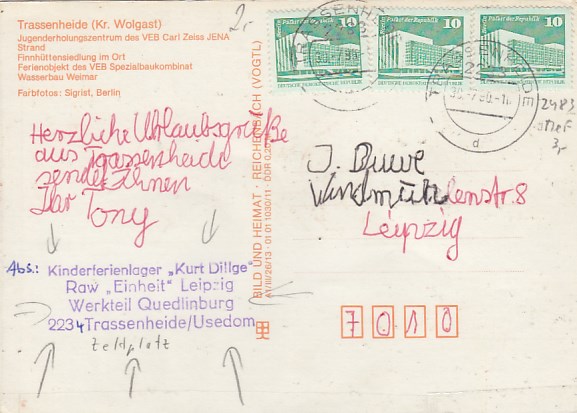 Trassenheide (Kr. Wolgast)
Jugenderholungszentrum des VEB Carl Zeiss JENA
Strand
Finnhüttensiedlung im Ort
Ferienobjekt des VEB Spezialbaukombinat
Wasserbau Weimar
Farbfotos: Sigrist, Berlin
2,-
Herzliche Urlaubsgrüße
aus Trassenheide
sendet Ihnen
Ihr Tony
Abs.: Kinderferienlager „Kurt Dillge"
Raw „Einheit" Leipzig
Werkteil Quedlinburg
2234 Trassenheide/Usedom
Zeltplatz
BILD UND HEIMAT · REICHENBACH (VOGTL)
A1/III/26/13 · 01 01 1030/11 · DDR 0,20
Palast der Republik 10
Palast der Republik 10
Palast der Republik 10
DEUTSCHE DEMOKRATISCHE REPUBLIK
TRASSENHEIDE
d
2483
3,-
J. Buwe
Windmühlenstr. 8
Leipzig
7010